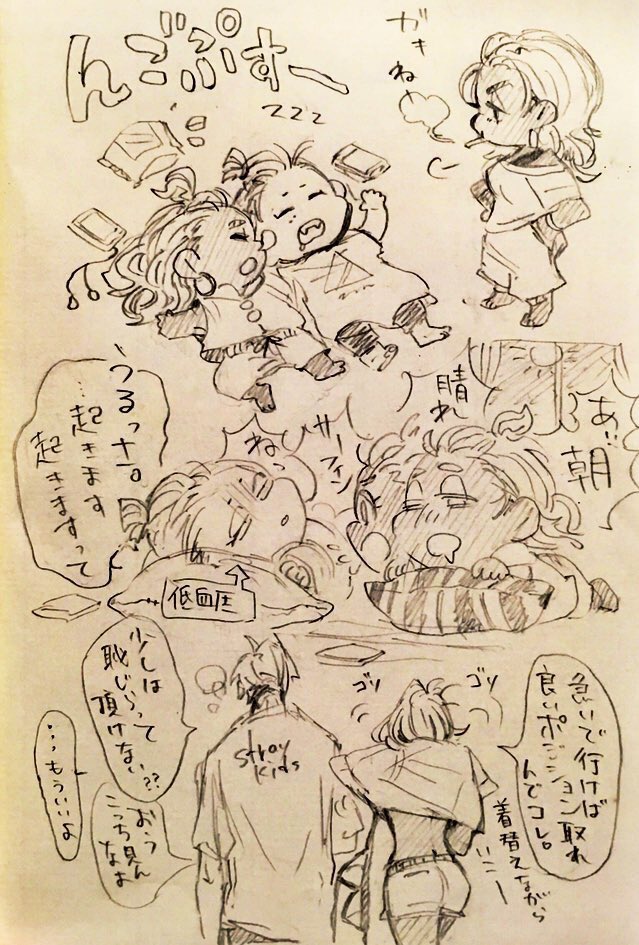 んごぷすー
zzz
ガキ
ねぇ
あ゛朝
晴れ
サーフィン
ねっ
うるっナ。
…起きます
起きますって
低血圧
急いで行けば
良いポジション取れ
んでコレ。
着替えながら
いこー
ゴソ
ゴソ
Stray
Kids
少しは
恥じらって
頂けない??
おいっ
こっち見ん
なぁ
…もういいよ